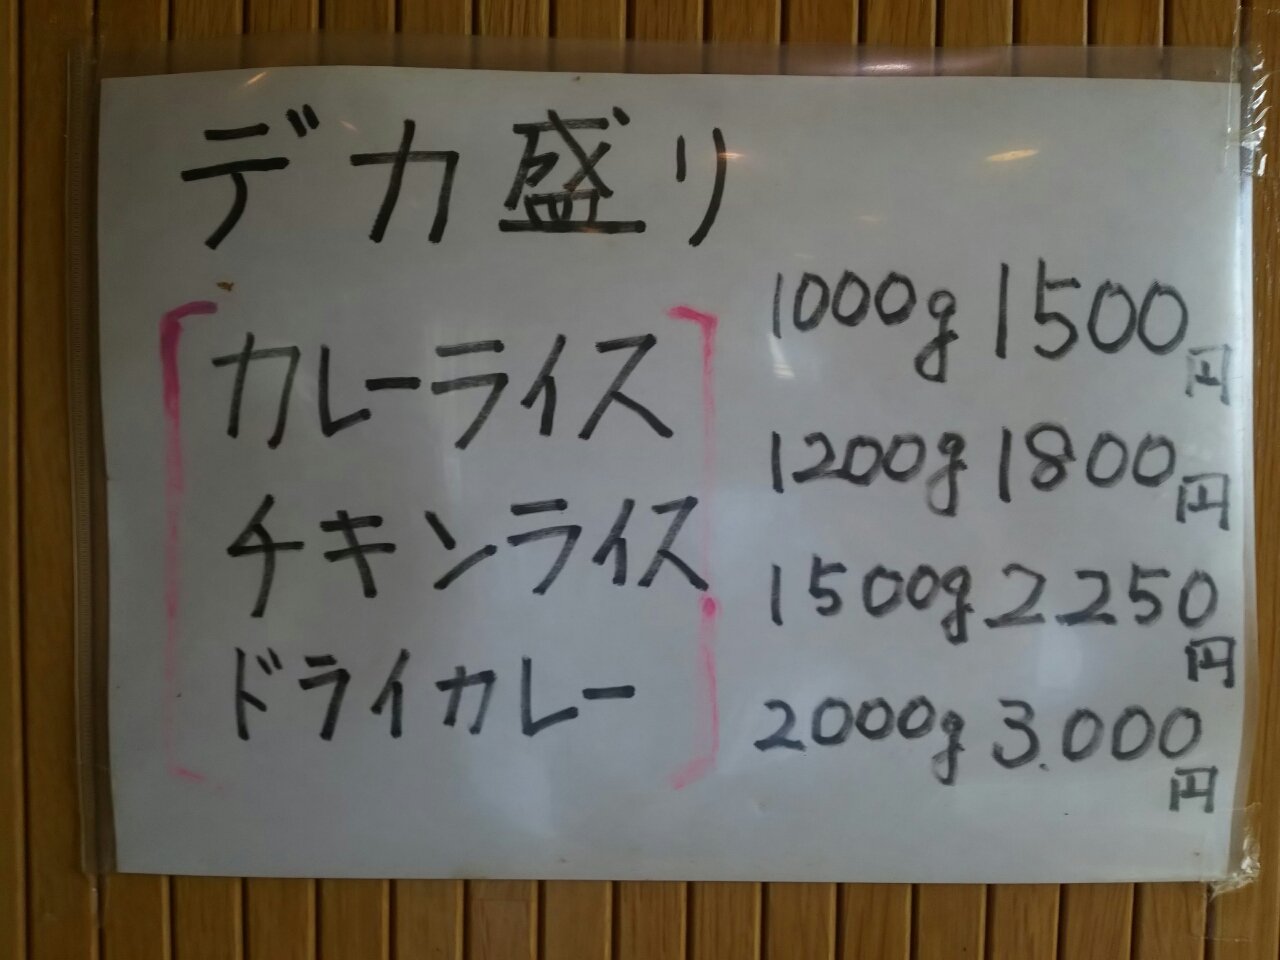 デカ盛り
カレーライス
チキンライス
ドライカレー
1000g 1500円
1200g 1800円
1500g 2250円
2000g 3.000円